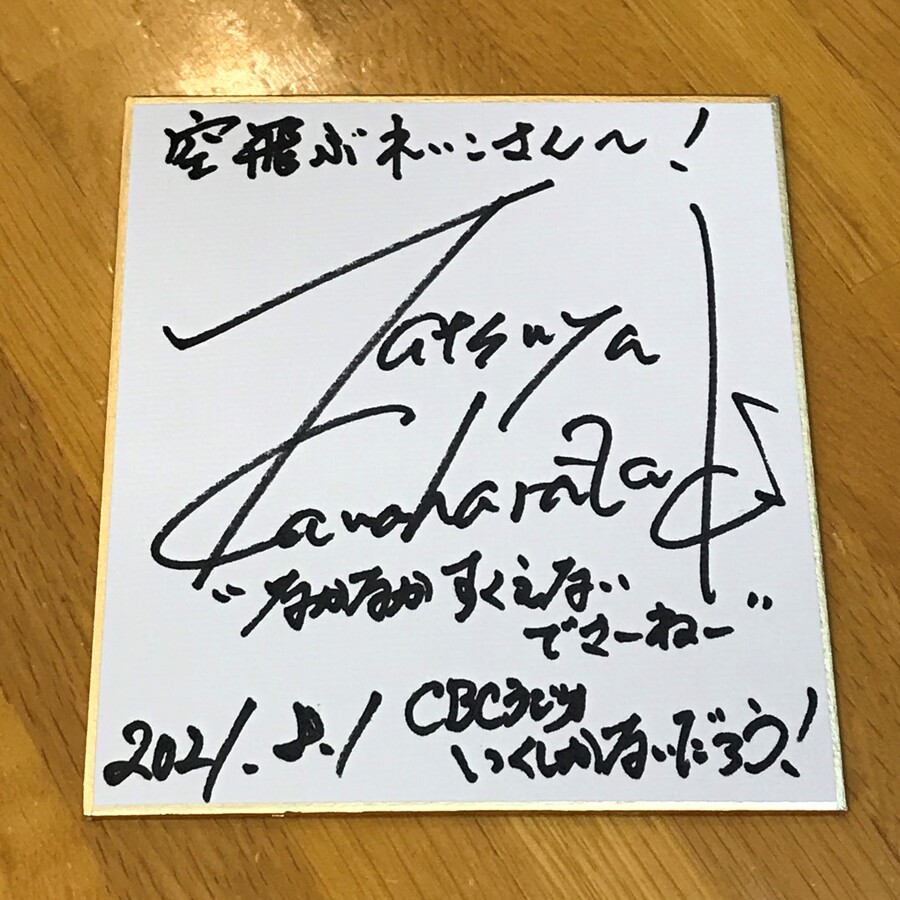 空飛ぶれいこさん〜！
Tatsuya
Kawahara
"なかなかすくえない
でさーねー"
2021.8.1
CBCラジオ
いくしかないだろう！